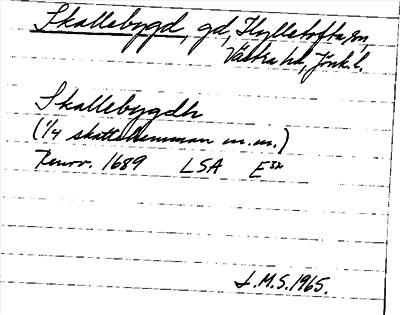 Skallebygd, gd, Hylletofta sn,
Västra hd, Jönk.l.
Skallebygdh
(1/4 skattehemman m.m.)
Renov. 1689 LSA E
J.M.S. 1965.